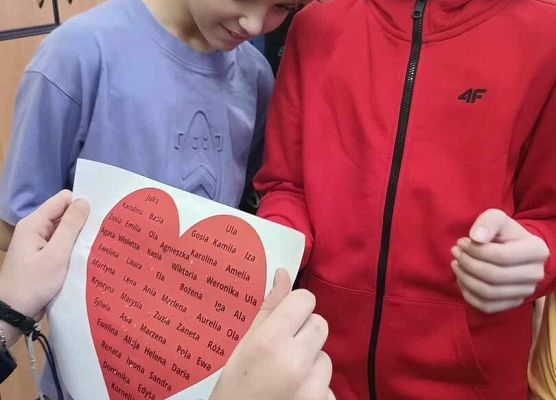 4F
Julia Ula
Karolina Basia Gosia Kamila Iza
Zosia Emilia Ola Agnieszka Karolina Amelia
Agata Wioletta Kasia Wiktoria Weronika Ula
Ewelina Laura Ela Bożena Iga Ala
Martyna Lena Ania Marlena Aurelia Ola
Krystyna Marysia Zuzia Żaneta Róża
Sylwia Asia Marzena Pola Ewa
Ewelina Alicja Helena Daria
Renata Iwona Sandra
Dominika Edyta
Kornelia